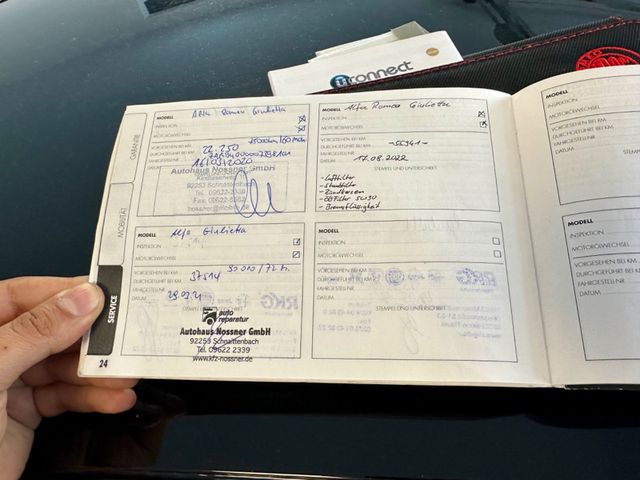 uconnect
GARANTIE
MOBILITÄT
SERVICE
24
MODELL Alfa Romeo Giulietta
INSPEKTION
MOTORÖLWECHSEL
VORGESEHEN BEI KM
DURCHGEFÜHRT BEI KM 22.250
FAHRGESTELLNR.
DATUM 16.03.2020
Autohaus Nossner GmbH
92253 Schnaittenbach
MODELL Alfa Romeo Giulietta
INSPEKTION
MOTORÖLWECHSEL
VORGESEHEN BEI KM
DURCHGEFÜHRT BEI KM -55941-
FAHRGESTELLNR.
DATUM 17.08.2022
STEMPEL UND UNTERSCHRIFT
- Luftfilter
- Staubfilter
- Zündkerzen
- Öl+Filter 5W30
- Bremsflüssigkeit
MODELL Alfa Giulietta
INSPEKTION
MOTORÖLWECHSEL
VORGESEHEN BEI KM 30 000 / 72 h.
DURCHGEFÜHRT BEI KM 37514
FAHRGESTELLNR.
DATUM 29.03.21
auto reparatur
Autohaus Nossner GmbH
92253 Schnaittenbach
Tel. 09622 2339
www.kfz-nossner.de
MODELL
INSPEKTION
MOTORÖLWECHSEL
VORGESEHEN BEI KM
DURCHGEFÜHRT BEI KM
FAHRGESTELLNR.
DATUM
STEMPEL UND UNTERSCHRIFT
MODELL
INSPEKTION
MOTORÖLWECHSEL
VORGESEHEN BEI KM
DURCHGEFÜHRT BEI KM
FAHRGESTELLNR.
DATUM
MODELL
INSPEKTION
MOTORÖLWECHSEL
VORGESEHEN BEI KM
DURCHGEFÜHRT BEI KM
FAHRGESTELLNR.
DATUM